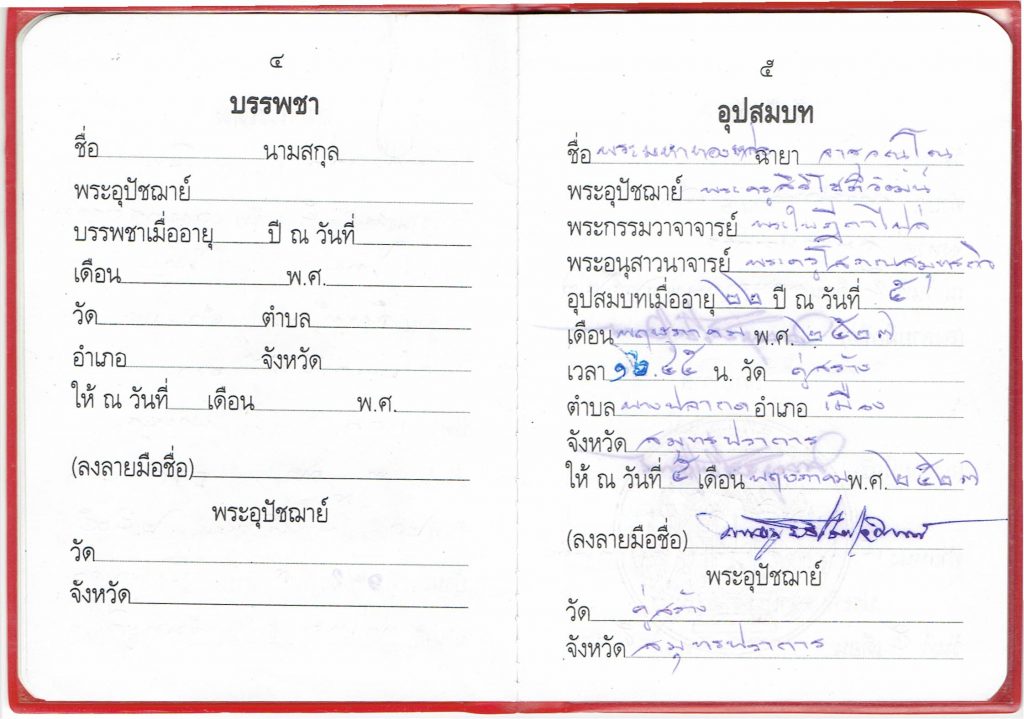 ๔
บรรพชา
ชื่อ นามสกุล
พระอุปัชฌาย์
บรรพชาเมื่ออายุ ปี ณ วันที่
เดือน พ.ศ.
วัด ตำบล
อำเภอ จังหวัด
ให้ ณ วันที่ เดือน พ.ศ.
(ลงลายมือชื่อ)
พระอุปัชฌาย์
วัด
จังหวัด
๕
อุปสมบท
ชื่อ พระมหาทอง ฉายา
พระอุปัชฌาย์ พระครูสิริโชติวัฒน์
พระกรรมวาจาจารย์ พระใบฎีกาไปล่
พระอนุสาวนาจารย์ พระครูโสภณสมุทร
อุปสมบทเมื่ออายุ ๒๒ ปี ณ วันที่ ๕
เดือน พฤษภาคม พ.ศ. ๒๕๒๗
เวลา ๑๖.๔๕ น. วัด คู่สร้าง
ตำบล อำเภอ เมือง
จังหวัด สมุทรปราการ
ให้ ณ วันที่ ๕ เดือน พฤษภาคม พ.ศ. ๒๕๒๗
(ลงลายมือชื่อ)
พระอุปัชฌาย์
วัด คู่สร้าง
จังหวัด สมุทรปราการ